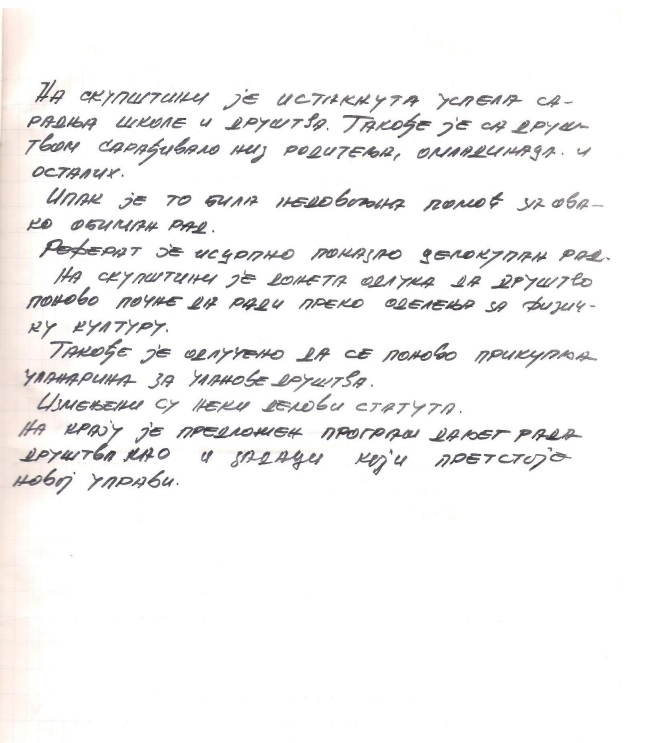 На скупштини је истакнута успела са-
радња школе и друштва. Такође је са друш-
твом сарађивало низ родитеља, омладинаца и
осталих.
Ипак је то била недовољна помоћ за ова-
ко обиман рад.
Реферат је исцрпно показао целокупан рад.
На скупштини је донета одлука да друштво
поново почне да ради преко одељења за физич-
ку културу.
Такође је одлучено да се поново прикупља
чланарина за чланове друштва.
Измењени су неки делови статута.
На крају је предложен програм даљег рада
друштва као и задаци који претстоје
новој управи.